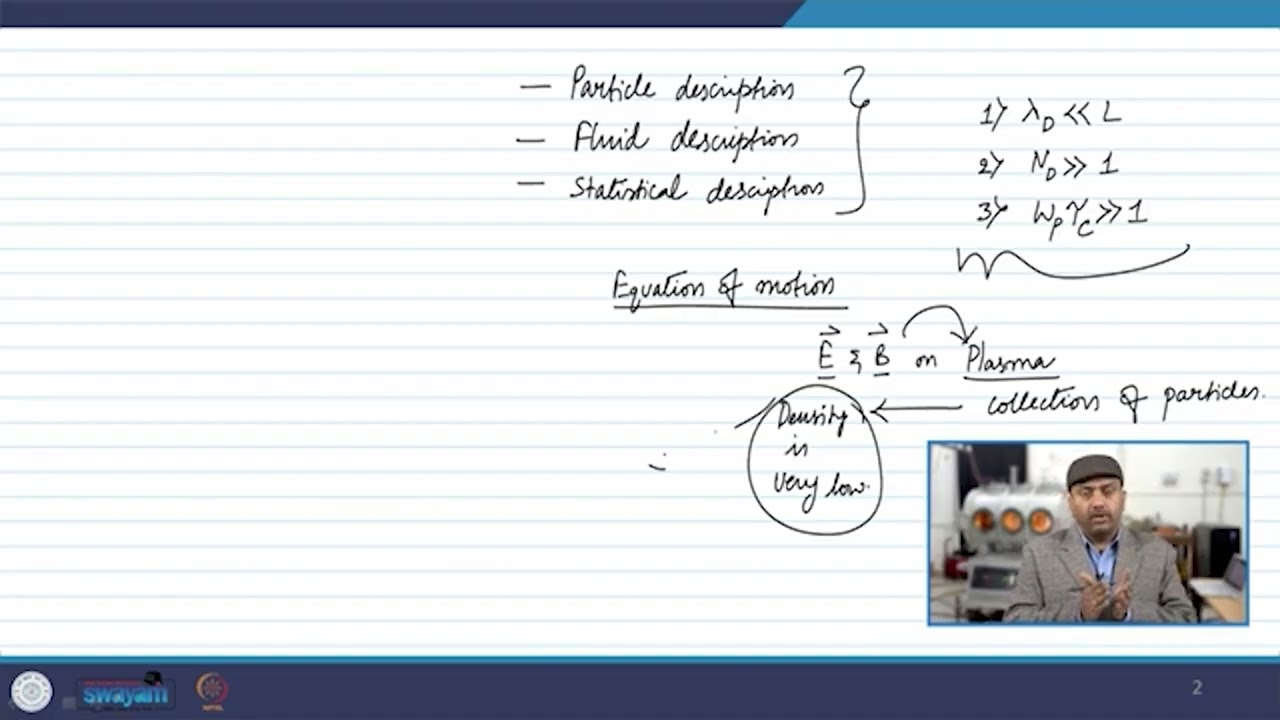 — Particle description
— Fluid description
— Statistical description
1) λD << L
2) ND >> 1
3) ωp τc >> 1
Equation of motion
E & B on Plasma
collection of particles.
Density
is
very low.
swayam
2